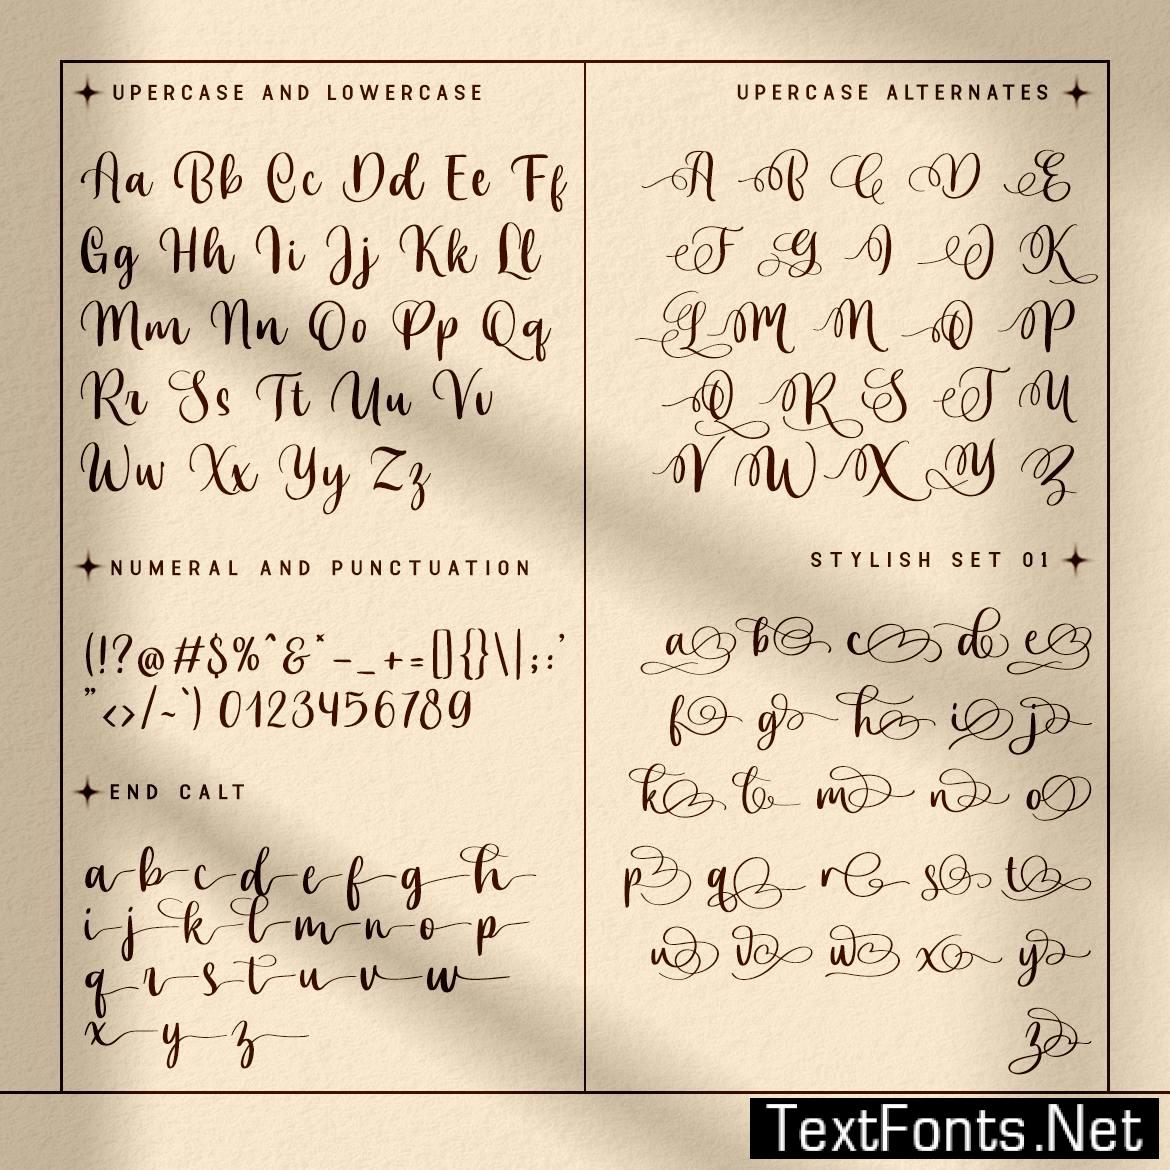 UPERCASE AND LOWERCASE
Aa Bb Cc Dd Ee Ff
Gg Hh Ii Jj Kk Ll
Mm Nn Oo Pp Qq
Rr Ss Tt Uu Vv
Ww Xx Yy Zz
NUMERAL AND PUNCTUATION
(!?@#$%^&* -_+=[]{}\|;:'
"<>/~`) 0123456789
END CALT
a b c d e f g h
i j k l m n o p
q r s t u v w
x y z
UPERCASE ALTERNATES
A B C D E
F G I J K
L M N O P
Q R S T U
V W X Y Z
STYLISH SET 01
a b c d e
f g h i j
k l m n o
p q r s t
u v w x y
z
TextFonts.Net